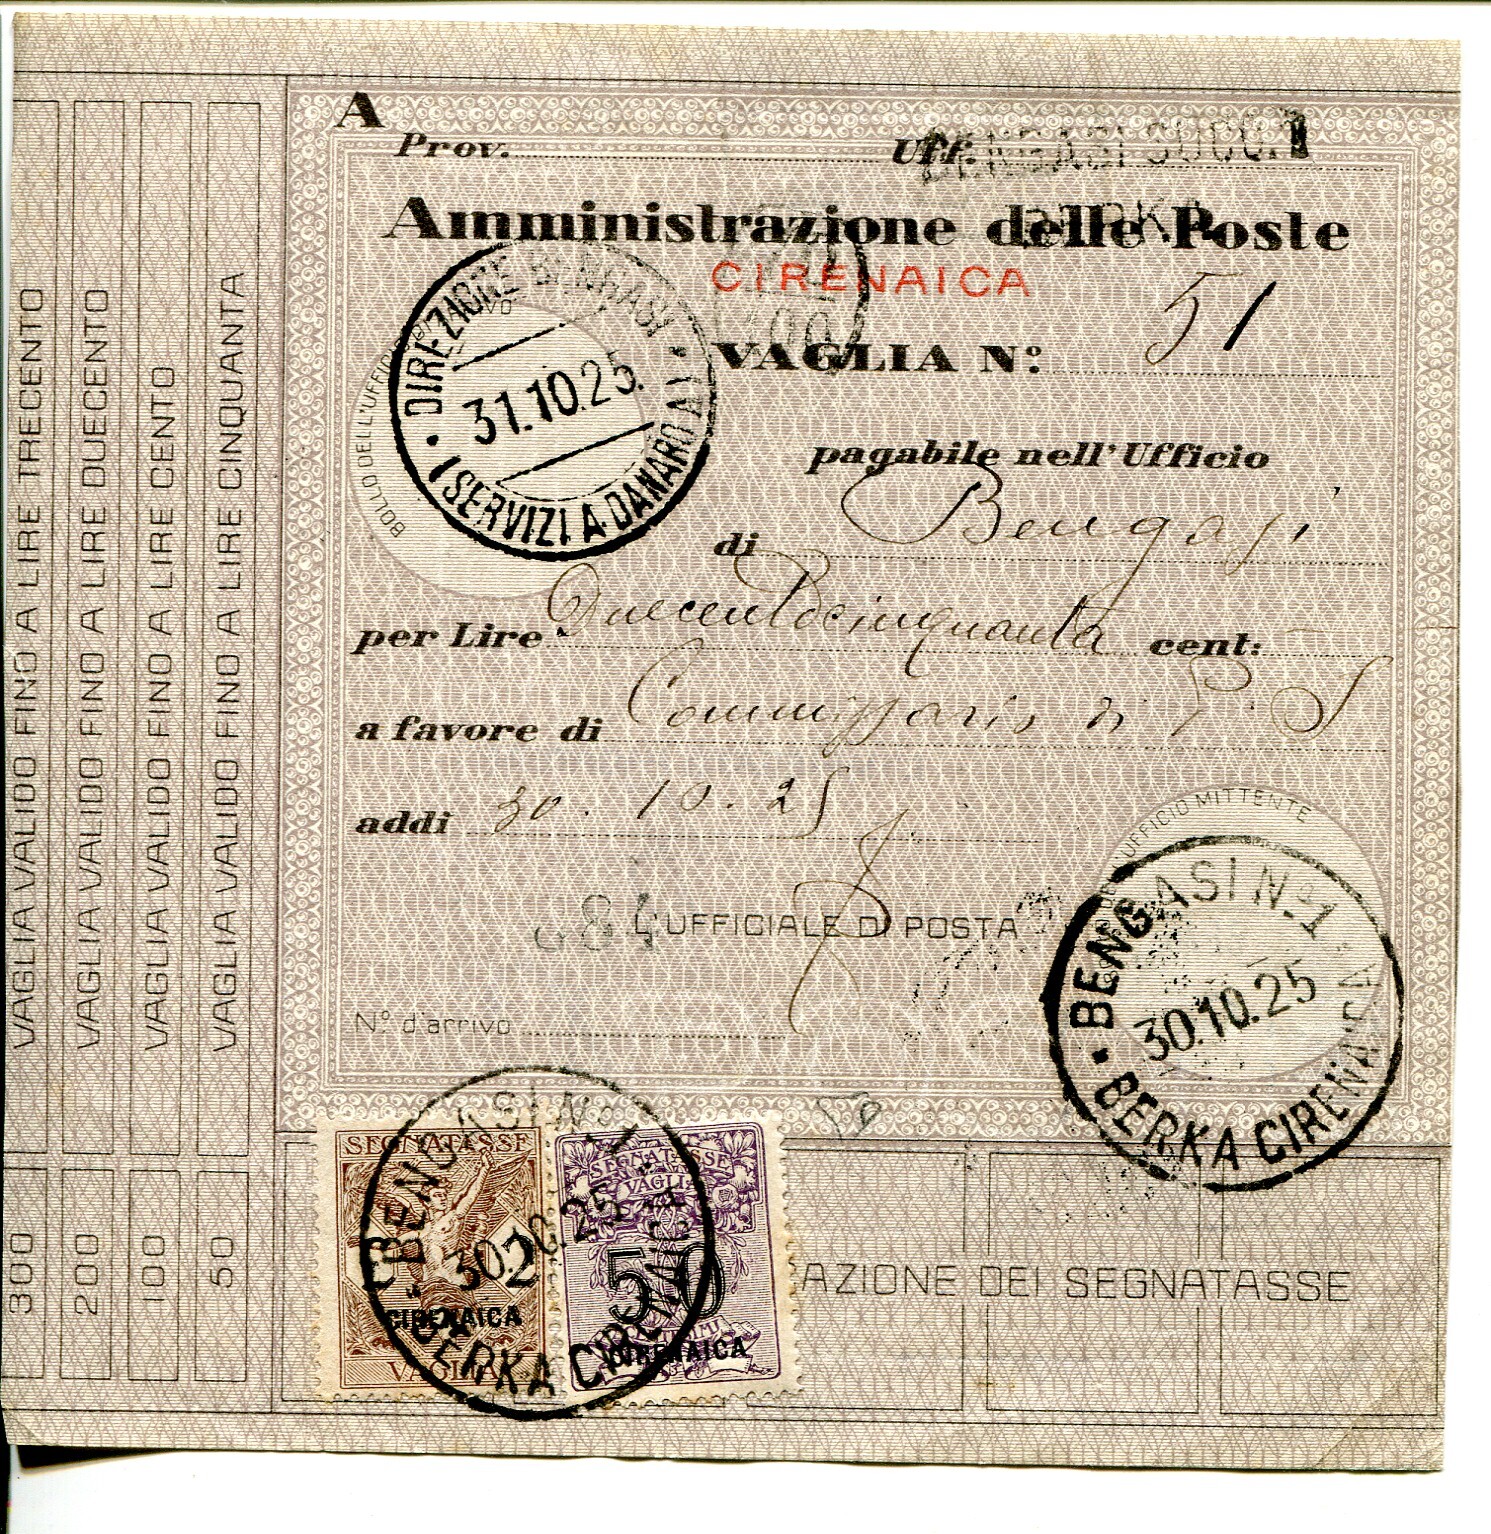 VAGLIA VALIDO FINO A LIRE TRECENTO
VAGLIA VALIDO FINO A LIRE DUECENTO
VAGLIA VALIDO FINO A LIRE CENTO
VAGLIA VALIDO FINO A LIRE CINQUANTA
300
200
100
50
A
Prov. Uff. BENGASI SUCC. 1
BERKA
Amministrazione delle Poste
CIRENAICA
VAGLIA N: 51
BOLLO DELL'UFFICIO
DIREZIONE BENGASI
31.10.25
(SERVIZI A DANARO A)
pagabile nell'Ufficio
di Bengasi
per Lire Duecentocinquanta cent:
a favore di Commissario di P. S
addi 30.10.25
084
L'UFFICIALE DI POSTA
N° d'arrivo
UFFICIO MITTENTE
BENGASI No 1
30.10.25
BERKA CIRENAICA
SEGNATASSE
2
CIRENAICA
VAGLIA
SEGNATASSE
VAGLIA
50
CENTESIMI
CIRENAICA
BENGASI No 1
30.10.25
BERKA CIRENAICA
AZIONE DEI SEGNATASSE